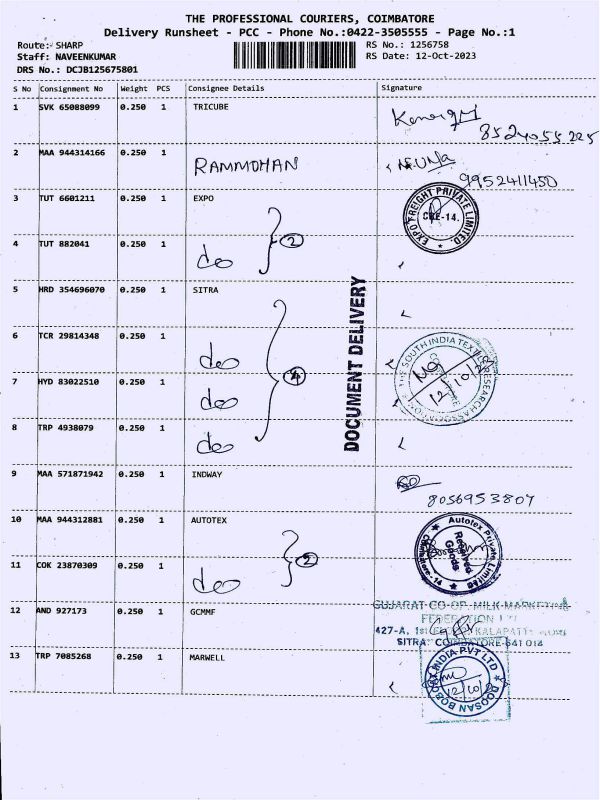 THE PROFESSIONAL COURIERS, COIMBATORE
Delivery Runsheet - PCC - Phone No.:0422-3505555 - Page No.:1
Route: SHARP
RS No.: 1256758
Staff: NAVEENKUMAR
RS Date: 12-Oct-2023
DRS No.: DCJB125675801
S No Consignment No Weight PCS Consignee Details Signature
1 SVK 65088099 0.250 1 TRICUBE
8524055225
2 MAA 944314166 0.250 1 RAMMOHAN
9952411450
3 TUT 6601211 0.250 1 EXPO
EXPO FREIGHT PRIVATE LIMITED. CBE-14.
4 TUT 882041 0.250 1 do 2
5 HRD 354696070 0.250 1 SITRA
DOCUMENT DELIVERY
6 TCR 29814348 0.250 1 do
THE SOUTH INDIA TEXTILE RESEARCH ASSOCIATION
12/10/23
7 HYD 83022510 0.250 1 do 4
8 TRP 4938079 0.250 1 do
9 MAA 571871942 0.250 1 INDWAY
8056953807
10 MAA 944312881 0.250 1 AUTOTEX
Autotex Private Limited
Received Goods
Coimbatore-14
11 COK 23870309 0.250 1 do 2
12 AND 927173 0.250 1 GCMMF
GUJARAT CO-OP. MILK MARKETING
FEDERATION LTD
427-A, KALAPATTI ROAD
SITRA, COIMBATORE-641 014
13 TRP 7085268 0.250 1 MARWELL
DOOSAN BOBCAT INDIA PVT LTD
12/10/23